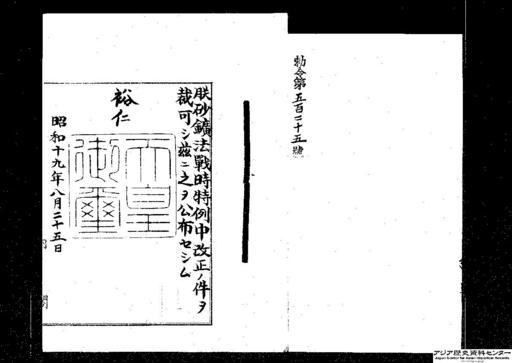 勅令第五百二十五號
朕砂鑛法戰時特例中改正ノ件ヲ
裁可シ茲ニ之ヲ公布セシム
裕仁
天皇御璽
昭和十九年八月二十五日
アジア歴史資料センター
Japan Center for Asian Historical Records